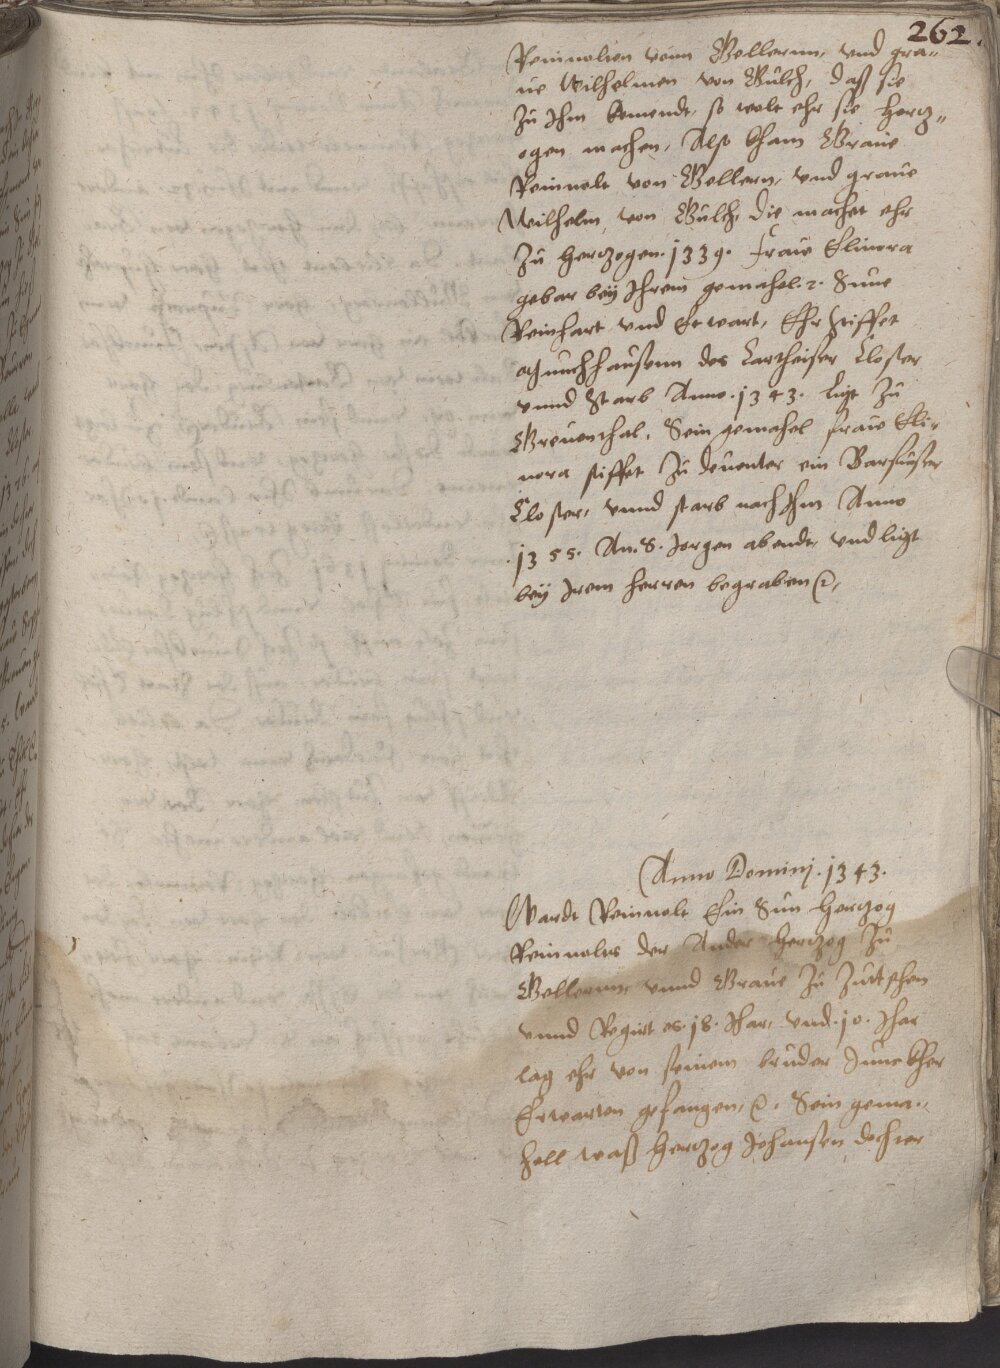 262.
Reinnolten vonn Gellernn, vnd gra„
ue Wilhelmen von Gülch, daß sie
zu Ihm kemendt, so wolt ehr sie hertz„
ogen machen, Alß kham Graue
Reinnolt von Gellern, vnd graue
Wilhelm, von Gülch, die machet ehr
zu hertzogen. 1339. fraue Elinora
gebar beÿ Ihrem gemahel. 2. Sune
Reinhart vnd Erwart, Ehr stiffet
Munchhaußenn des Cartheiser Closter
vnnd starb Anno. 1343. ligt zu
Greuenthal, Sein gemahel fraue Eli„
nora stiffet zu deuenter ein Barfueßer
Closter, vnnd starb nach Ihm Anno
1355. An. S. Jorgen abendt, vnd ligt
beÿ Irem herren begraben
Anno Dominj. 1343.
Wardt Reinnolt Ein Sun hertzog
Reinnoltes der Ander hertzog zu
Gellernn, vnnd Graue zu Zuttphen
vnnd Regirt es. 18. Ihar, vnd. 10. Ihar
lag ehr von seinem bruder Junckher
Erwarten gefangen, Sein gema„
hell waß hertzog Johansen dochter